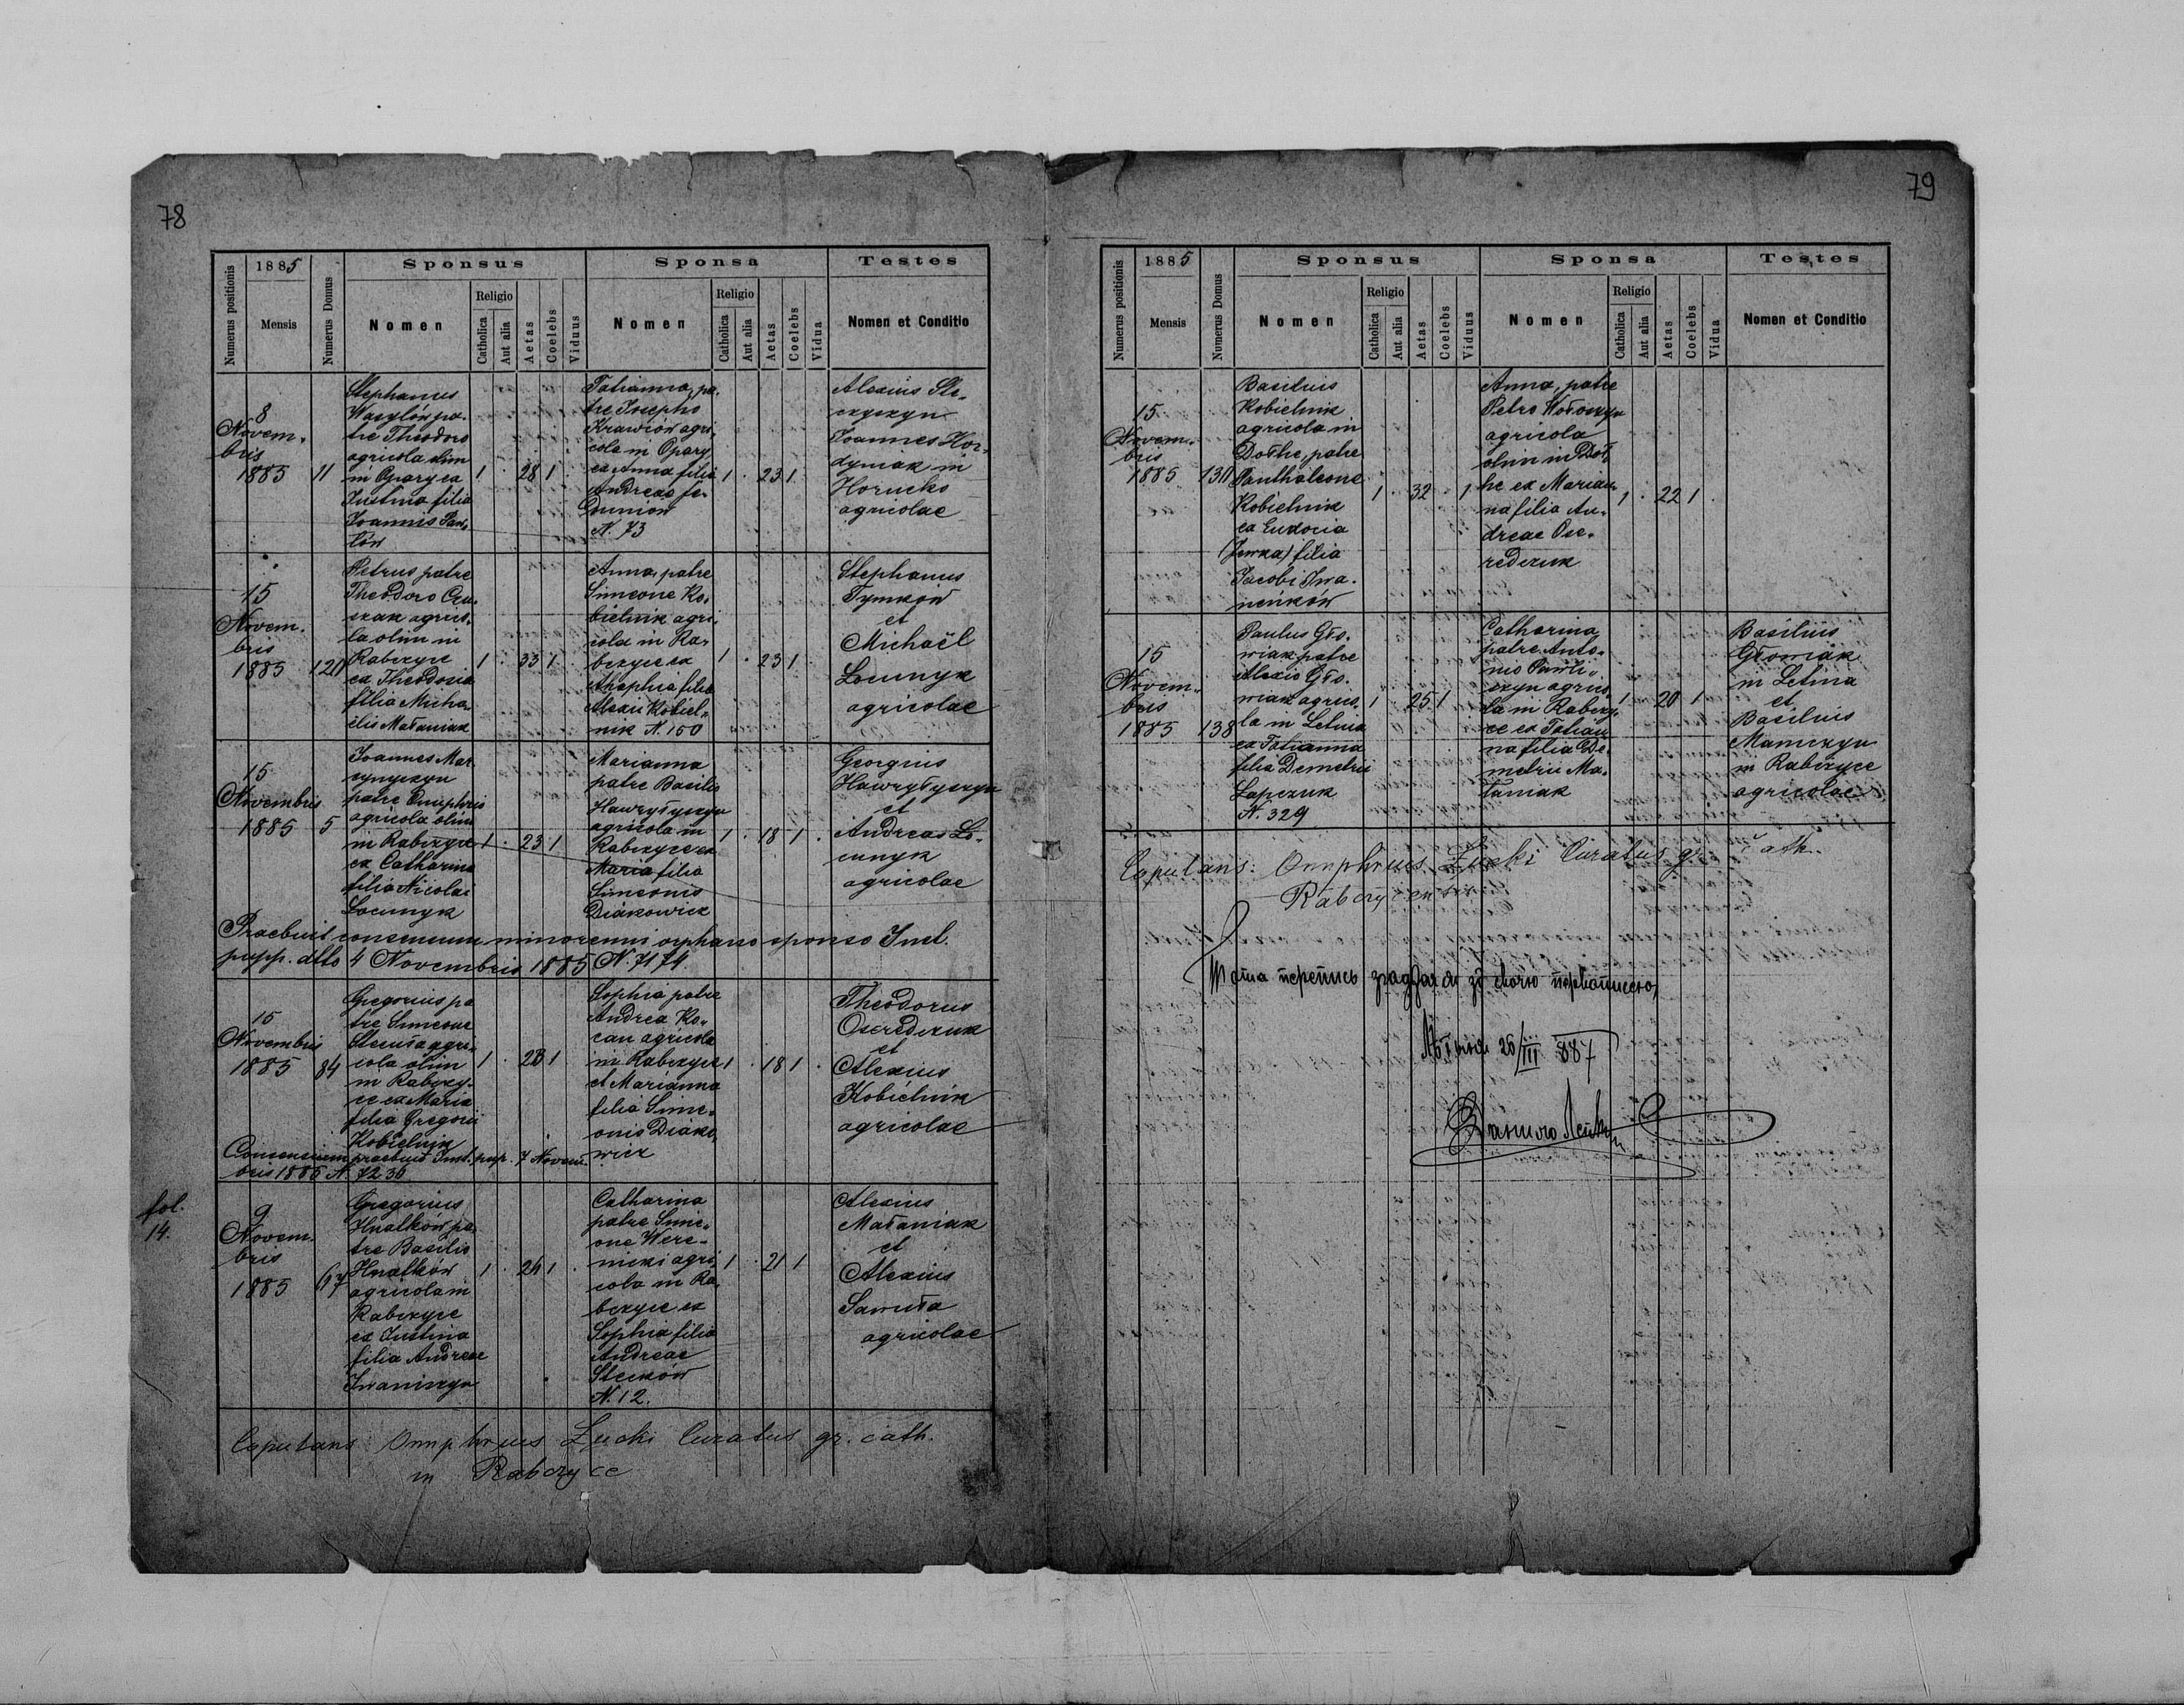 78
1885
Sponsus
Sponsa
Testes
Numerus positionis
Mensis
Numerus Domus
Nomen
Religio
Catholica
Aut alia
Aetas
Coelebs
Viduus
Nomen
Religio
Catholica
Aut alia
Aetas
Coelebs
Vidua
Nomen et Conditio
8
Novem-
bris
1885
11
Stephanus
Wasylów pa-
tre Theodoro
agricola olim
in Opary ex
Justina filia
Joannis Paw-
lów
1 . 28 1
Tatianna, pa-
tre Josepho
Krawców agri-
cola in Opary
ex Anna filia
Andreas
N. 73
1 . 23 1
Alexius
Joannes Hor-
dyniak in
Horucko
agricolae
15
Novem-
bris
1885
120
Petrus patre
Theodoro
agrico-
la olim in
Rabczyce
ex Theodoria
filia Micha-
ëlis Mataniak
1 . 33 1
Anna, patre
Simeone Ko-
bielnik agri-
cola in Ra-
bczyce ex
Ahaphia filia
Alexii Kobiel-
nik N. 150
1 . 23 1
Stephanus
Tymkow
et
Michaël
Locunyk
agricolae
15
Novembris
1885
5
Joannes
patre Onuphrio
agricola olim
in Rabczyce
ex Catharina
filia Nicolai
Locunyk
1 . 23 1
Marianna
patre Basilio
Hawryłyszyn
agricola in
Rabczyce ex
Maria filia
Simeonis
Diakowicz
1 . 18 1 .
Georgius
Hawryłyszyn
et
Andreas Lo-
cunyk
agricolae
Praebuit consensum minorenni orphano sponso Inst.
pupp. dtto 4 Novembris 1885 N. 7174.
15
Novembris
1885
84
Gregorius pa
tre Simeone
agri-
cola olim
in Rabczy-
ce ex Maria
filia Gregorii
Kobielnik
1 . 23 1
Sophia patre
Andrea Ko-
can agricola
in Rabczyce
et Marianna
filia Sime-
onis Diako-
wicz
1 . 18 1 .
Theodorus
Oseredczuk
et
Alexius
Kobielnik
agricolae
Consensum praebuit Inst. pup. 7 Novem-
bris 1885 N. 7236
fol.
14.
9
Novem-
bris
1885
67
Gregorius
Hnatków pa
tre Basilio
Hnatków
agricola in
Rabczyce
ex Justina
filia Andreae
Iwaniszyn
1 . 24 1 .
Catharina
patre Sime-
one Were-
nicki agri-
cola in Ra-
bczyce ex
Sophia filia
Andreae
Steców
N. 12.
1 . 21 1
Alexius
Mataniak
et
Alexius
Sawuła
agricolae
Copulans: Onuphrius Łucki Curatus gr. cath.
in Rabczyce
79
1885
Sponsus
Sponsa
Testes
Numerus positionis
Mensis
Numerus Domus
Nomen
Religio
Catholica
Aut alia
Aetas
Coelebs
Viduus
Nomen
Religio
Catholica
Aut alia
Aetas
Coelebs
Vidua
Nomen et Conditio
15
Novem-
bris
1885
130
Basilius
Kobielnik
agricola in
Dołhe, patre
Panthaleone
Kobielnik
ex Eudocia
(Jewka) filia
Jacobi Iwa-
neńków
1 . 32 . 1
Anna, patre
Petro Wołoszyn
agricola
olim in Doł-
he ex Marian-
na filia An-
dreae Ose-
redczuk
1 . 22 1 .
15
Novem-
bris
1885
138
Paulus Gło-
wiak patre
Alexio Gło-
wiak agrico-
la in Letnia
ex Tatianna
filia Demetrii
Łapczuk
N. 329
1 . 25 1
Catharina
patre Anto-
nio Pawli-
szyn agrico-
la in Rabczy-
ce ex Tatian-
na filia De-
metrii Ma-
taniak
1 . 20 1
Basilius
Głowiak
in Letnia
et
Basilius
in Rabczyce
agricolae
Copulans: Onuphrius Łucki Curatus gr. cath.
Rabczycensis
перепись
26/III 887